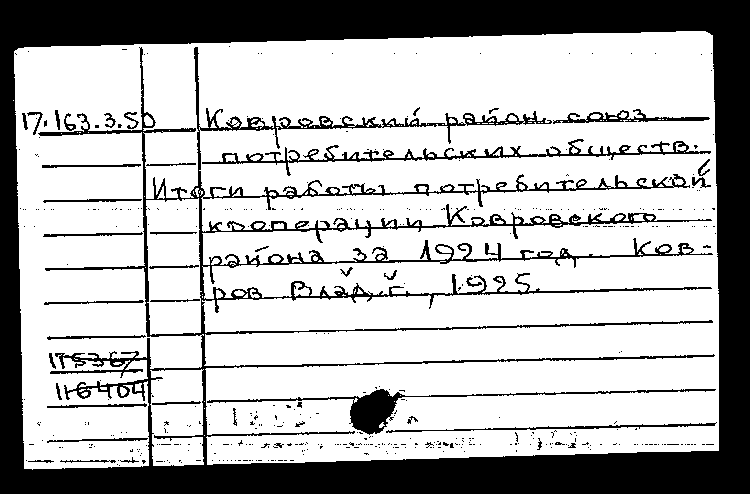 17.163.3.50 Ковровский район. союз
потребительских обществ.
Итоги работы потребительской
кооперации Ковровского
района за 1924 год. Ков-
ров Влад. г., 1925.
115367
116404